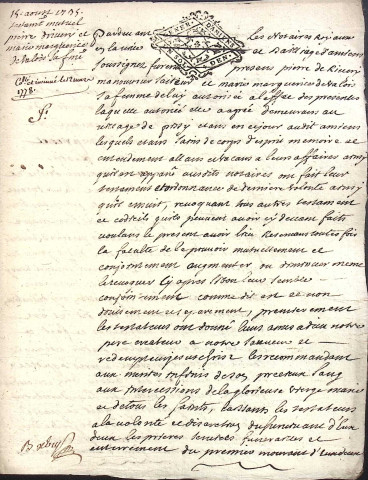 15. aoust 1735.
testament mutuel
pierre
marie marguerite
de valois sa fme
1778.
Pardevant Les Notaires Royaux
en la ville et Bailliage d'amiens
soussignez furent presens pierre de
manouvrier et marie marguerite de valois
sa femme de luy autorisé a l'effet des presentes
laquelle autorité elle a agréé demeurans au
village de estans en ce jour audit amiens
lesquels etans sains de corps d'esprit memoire et
entendement allans et vacans a leurs affaires ainsy
qu'il est apparu ausdits notaires ont fait leur
testament et ordonnance de derniere volonté ainsy
qu'il ensuit, revoquant tous autres testament
et codicils qu'ils peuvent avoir cy devant faits
voulans le present avoir lieu Reservans toutes fois
la faculté de le pouvoir mutuellement et
conjointement augmenter ou diminuer meme
le revoquer cy apres si bon leur semble
conjointement comme dit est et non
divisement et separement, premierement
les testateurs ont donné leurs ames a dieu notre
pere createur a notre sauveur et
redempteur jesus christ les recommandant
aux merites infinis de son precieux sang
aux intercessions de la glorieuse vierge marie
et de tous les saints, laissans les testateurs
a la volonté et discretion du survivant d'Eux
deux les prieres services funerailles et
enterrement du premier mourant d'Eux deux